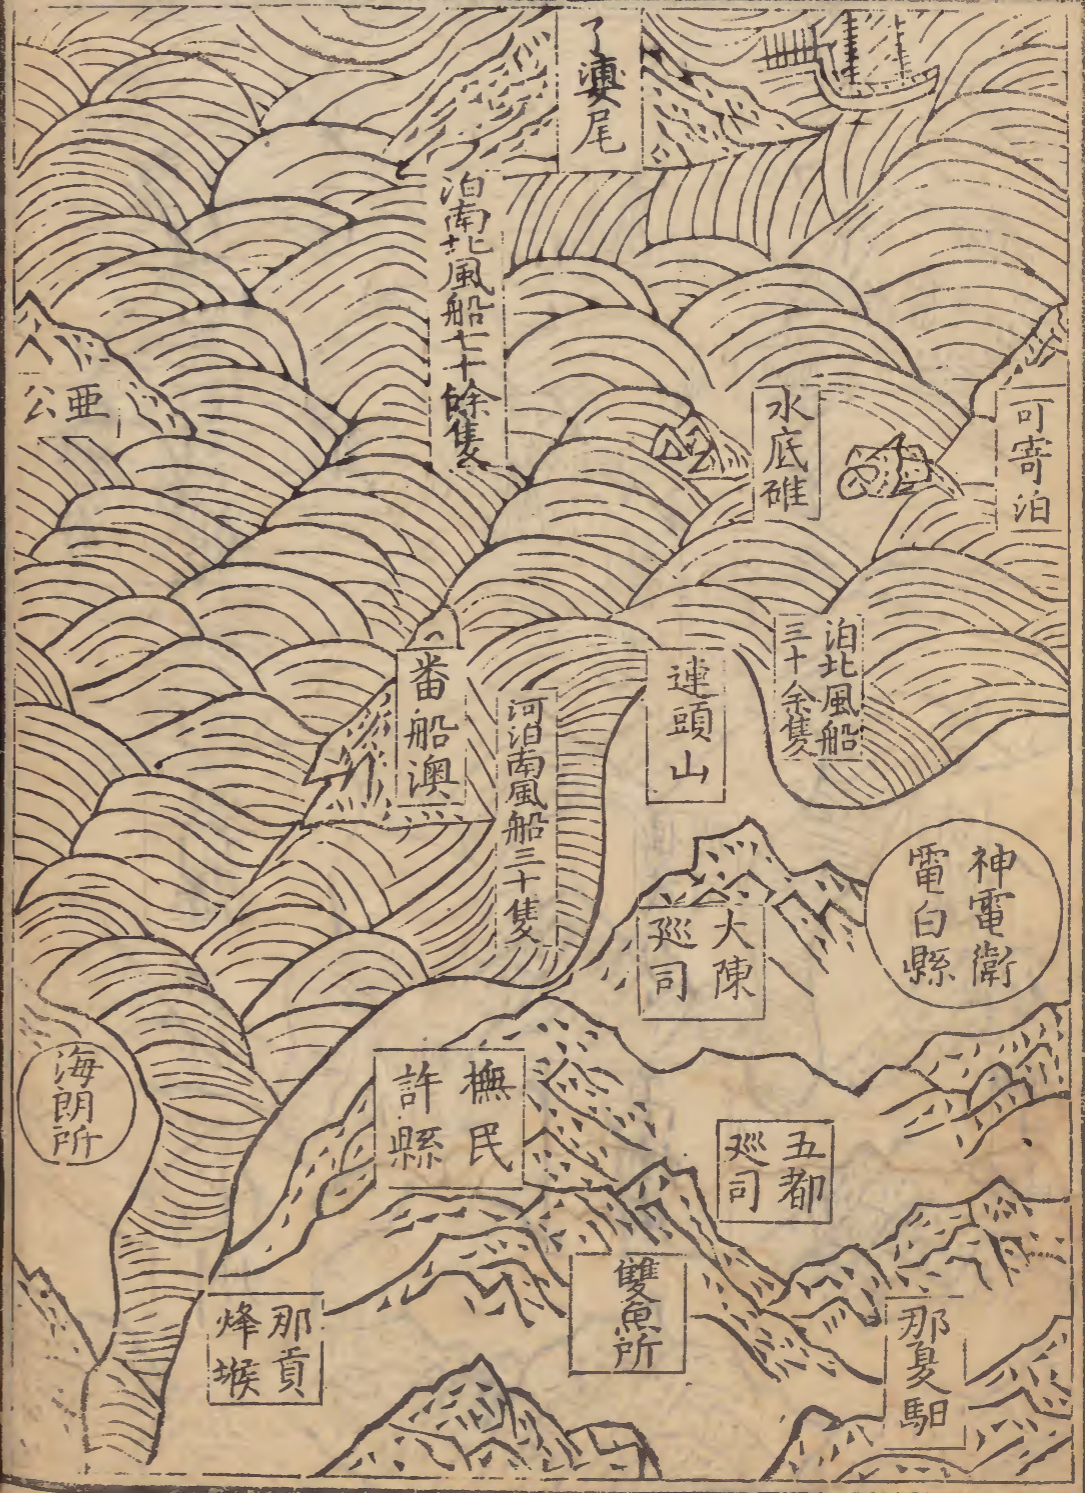 泊南北風船七十餘隻
公亜
水底礁
可寄泊
番船澳
河泊南風船三十隻
連頭山
泊北風船
三十余隻
神電衛
電白縣
大陳
巡司
海朗所
撫民
許縣
五都
巡司
雙魚所
那貢
烽堠
那夏馹